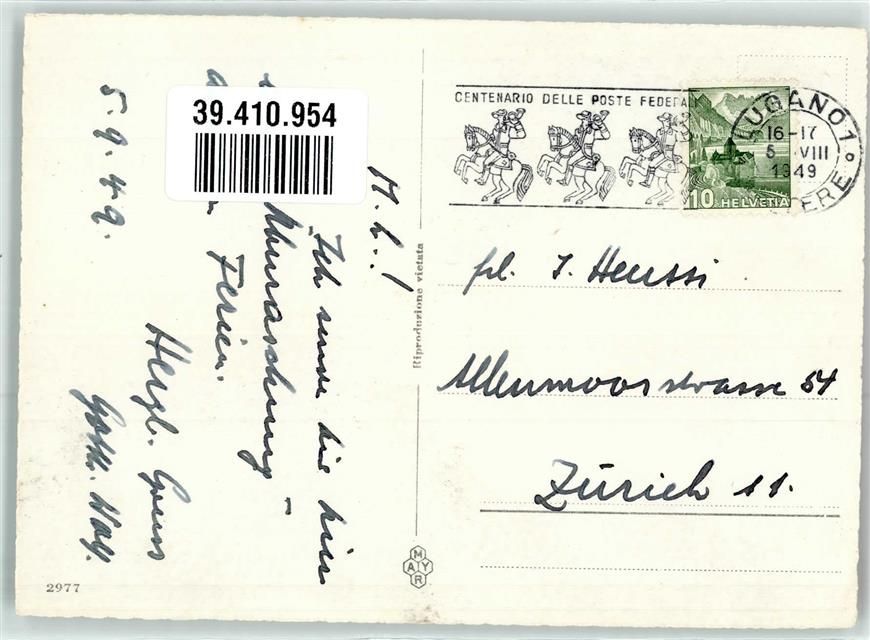 5.9.49.
M. L.!
Ich sende dir hier
Überraschung –
Ferien.
Herzl. Gruss
39.410.954
Riproduzione vietata
MAYR
2977
CENTENARIO DELLE POSTE FEDERALI
LUGANO 1
16-17
5. VIII
1949
10 HELVETIA
frl. J. Heussi
Allenmoosstrasse 54
Zürich 11.